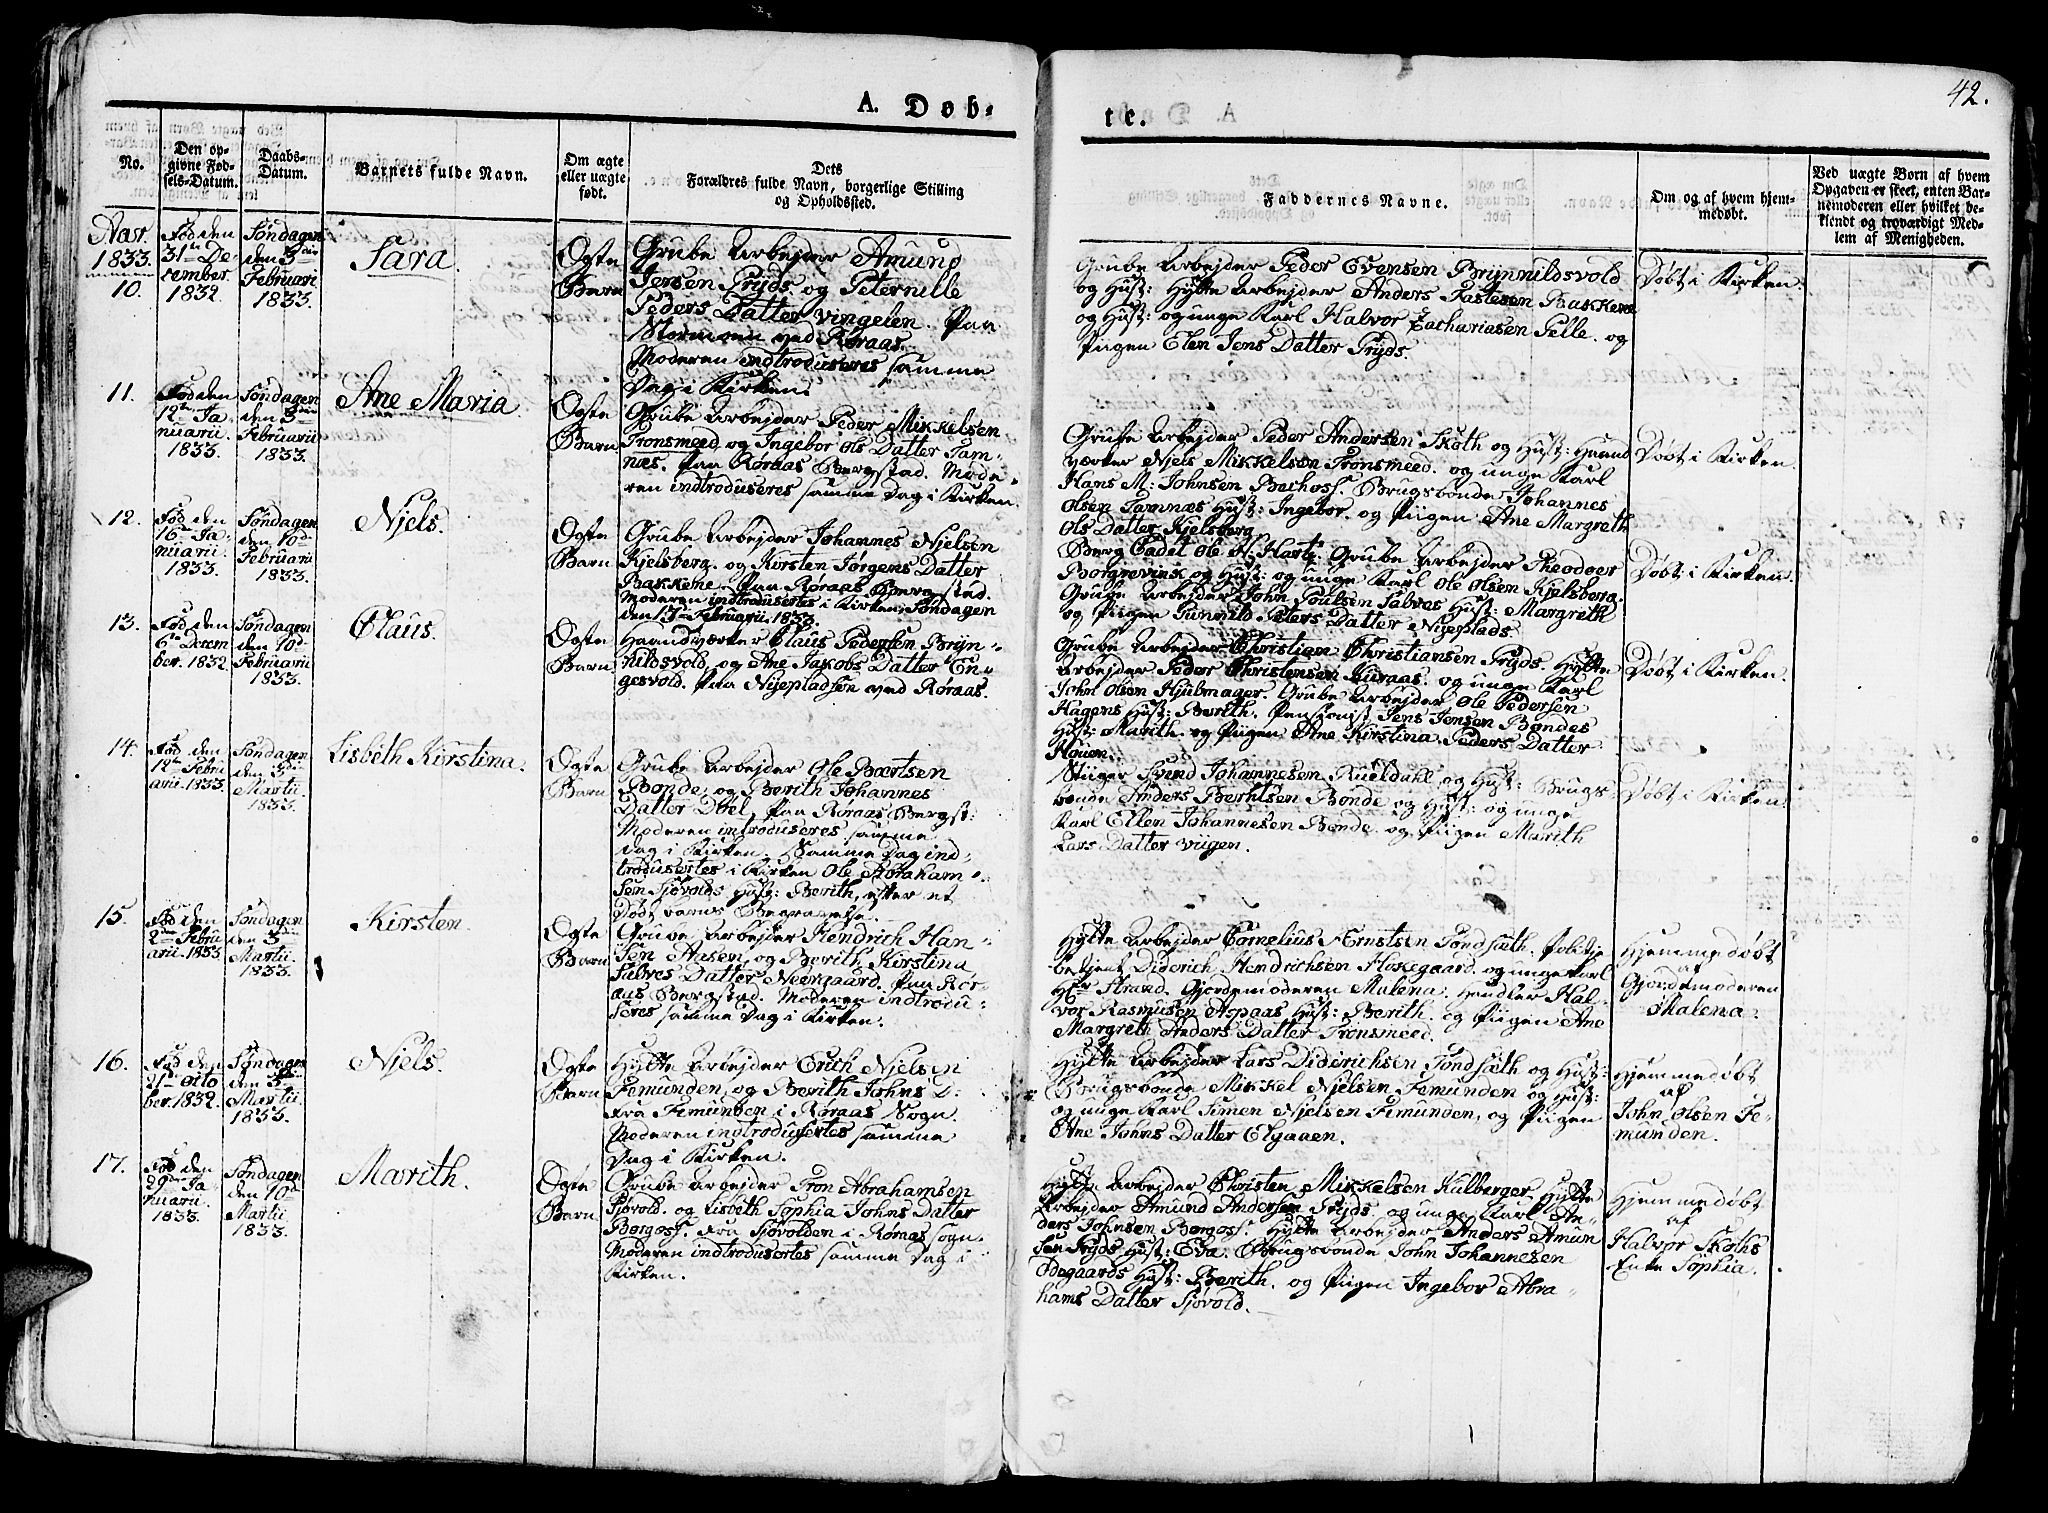 42.
A. Døb-
te.
No.
Den op-
givne Fød-
sels-Datum.
Daabs-
Datum.
Barnets fulde Navn.
Om ægte
eller uægte
født.
Dets
Forældres fulde Navn, borgerlige Stilling
og Opholdssted.
Faddernes Navne.
Om og af hvem hjem-
medøbt.
Ved uægte Børn af hvem
Opgaven er skeet, enten Bar-
nemoderen eller hvilket be-
kiendt og troværdigt Med-
lem af Menigheden.
Aar.
1833.
10.
Fød den
31te De-
cember
1832.
Søndagen
den 3die
Februarii
1833.
Sara.
Ægte
Barn
Grube Arbejder Amund
Jensen Pryds og Peternille
Peders Datter Vingelen. Paa
Stormoen ved Røraas.
Moderen indtroduseres samme
Dag i Kirken.
Grube Arbejder Peder Evensen Brynnildsvold
og Hust: Hytte Arbejder Anders Rastesen Bakkene
og Hust: og unge Karl Halvor Zachariasen Pelle. og
Piigen Elen Jens Datter Pryds.
Døbt i Kirken.
11.
Fød den
12te Ja-
nuarii.
1833.
Søndagen
den 3die
Februarii
1833.
Ane Maria.
Ægte
Barn
Grube Arbejder Peder Mikkelsen
Tronsmeed og Ingebor Ols Datter Tam-
næs. Paa Røraas Bergstad. Mode-
ren indtroduseres samme Dag i Kirken.
Grube Arbejder Peder Andersen Skoth og Hust: Haand
værker Njels Mikkelsen Tronsmeed. og unge Karl
Hans M: Johnsen Bechoss. Brugsbonde Johannes
Olsen Tamnæs Hust: Ingebor. og Piigen Ane Margreth
Ols Datter Kjelsberg.
Døbt i Kirken.
12.
Fød den
16te Ja-
nuarii.
1833.
Søndagen
den 10de
Februarii
1833.
Njels.
Ægte
Barn
Grube Arbejder Johannes Njelsen
Kjelsberg. og Kirsten Jørgens Datter
Bakkene. Paa Røraas Bergstad.
Moderen indtrodusertes i Kirken Søndagen
den 17de Februarii 1833.
Berg Cadet Ole H: Hartz. Grube Arbejder Theodoer
Borgrevink og Hust: og unge Karl Ole Olsen Kjelsberg.
Grube Arbejder John Poulsen Salvas Hust: Margreth
og Piigen Gunnild Peters Datter Nyeplads.
Døbt i Kirken.
13.
Fød den
6te Decem
ber. 1832.
Søndagen
den 10de
Februarii
1833.
Claus.
Ægte
Barn
Haandværker Claus Pedersen Bryn-
hildsvold, og Ane Jakobs Datter En-
gesvold. Paa Nyepladsen ved Røraas.
Grube Arbejder Christian Christiansen Pryds. Hytte
Arbejder Peder Christensen Kuraas. og unge Karl
John Olsen Hjulmager. Grube Arbejder Ole Pedersen
Hagens Hust: Berith. Pensionist Jens Jensen Bondes
Hust: Marith. og Piigen Ane Kirstina Peders Datter
Houen.
Døbt i Kirken.
14.
Fød den
12te Febru
arii. 1833.
Søndagen
den 3die
Martii
1833.
Lisbeth Kirstina.
Ægte
Barn
Grube Arbejder Ole Bertsen
Bonde, og Berith Johannes
Datter Doel, Paa Røraas Bergst:
Moderen introduseres samme
Dag i Kirken. Samme Dag ind-
trodusertes i Kirken Ole Abraham-
sen Sjøvolds Hust: Berith, efter et
Død barns Begravelse.
Stiiger Svend Johannesen Rueldahl og Hust: Brugs
bonde Anders Berntsen Bonde og Hust: og unge
Karl Ellen Johannesen Bonde. og Piigen Marith
Lars Datter Viigen.
Døbt i Kirken.
15.
Fød den
2den Febru
arii. 1833
Søndagen
den 3die
Martii.
1833.
Kirsten.
Ægte
Barn
Grube Arbejder Hendrich Han-
sen Aasen, og Berith Kirstina
Salves Datter Neergaard. Paa Rør-
aas Bergstad. Moderen indtrodu-
seres samme Dag i Kirken.
Hytte Arbejder Cornelius Ernstsen Tønsæth. Politje
betjent Diderich Hendrichsen Floxegaard. og unge Karl
Hr Strand. Gjordemoderen Malena. Handler Hal-
vor Rasmusen Aspaas Hust: Berith. og Piigen Ane
Margreth Anders Datter Tronsmeed.
Hjemmedøbt
af
Gjordemoderen
Malena.
16.
Fød den
21de Octo
ber. 1832.
Søndagen
den 3die
Martii.
1833.
Njels.
Ægte
Barn
Hytte Arbejder Erich Njelsen
Femunden, og Berith Johns D:
fra Femunden i Røraas Sogn.
Moderen indtrodusertes samme
Dag i Kirken.
Hytte Arbejder Lars Diderichsen Tønsæth og Hust:
Brugsbonde Mikkel Njelsen Femunden og Hust:
og unge Karl Simen Njelsen Femunden, og Piigen
Ane Johns Datter Elgaaen.
Hjemmedøbt
af
John Olsen Fe-
munden.
17.
Fød den
29de Ja-
nuarii
1833.
Søndagen
den 10de
Martii
1833.
Marith.
Ægte
Barn
Grube Arbejder Tron Abrahamsen
Sjøvold. og Lisbeth Sophia Johns Datter
Borgoss. fra Sjøvolden i Røraas Sogn.
Moderen indtrodusertes samme Dag i
Kirken.
Hytte Arbejder Christen Mikkelsen Kulberger. Hytte
Arbejder Amund Andersen Pryds. og unge Karl An-
ders Johnsen Borgoss. Hytte Arbejder Anders Amun
sen Pryds Hust: Eva. Brugsbonde John Johannesen
Ødegaards Hust: Berith. og Piigen Ingebor Abra-
hams Datter Sjøvold.
Hjemmedøbt
af
Halvor Skoths
Enke Sophia.